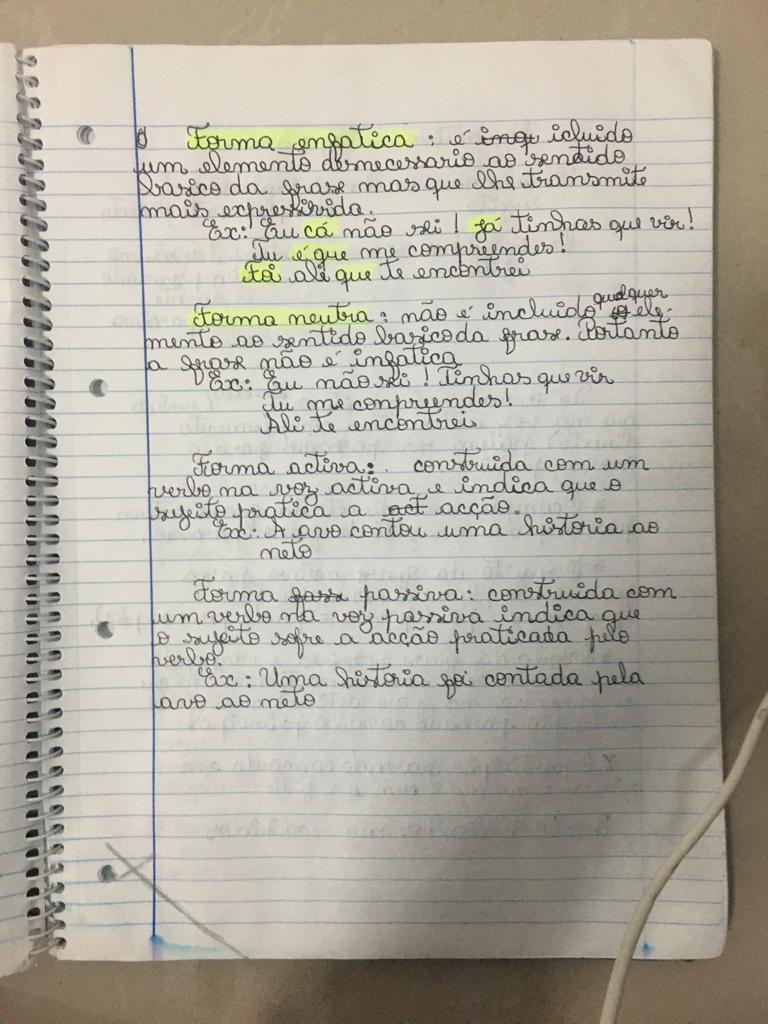 Forma enfatica : é icluido
um elemento desnecessario ao sentido
basico da frase mas que lhe transmite
mais expressivida.
Ex: Eu cá não sei ! Já tinhas que vir!
Tu é que me compreendes!
Foi ali que te encontrei
Forma neutra : não é incluido qualquer ele-
mento ao sentido basico da frase. Portanto
a frase não é infatica
Ex: Eu não sei ! Tinhas que vir
Tu me conpreendes!
Ali te encontrei
Forma activa: construida com um
verbo na voz activa e indica que o
sujeito pratica a acção.
Ex: A avo contou uma historia ao
neto
Forma passiva: construida com
um verbo na voz passiva indica que
o sujeito sofre a acção praticada pelo
verbo.
Ex: Uma historia foi contada pela
avo ao neto